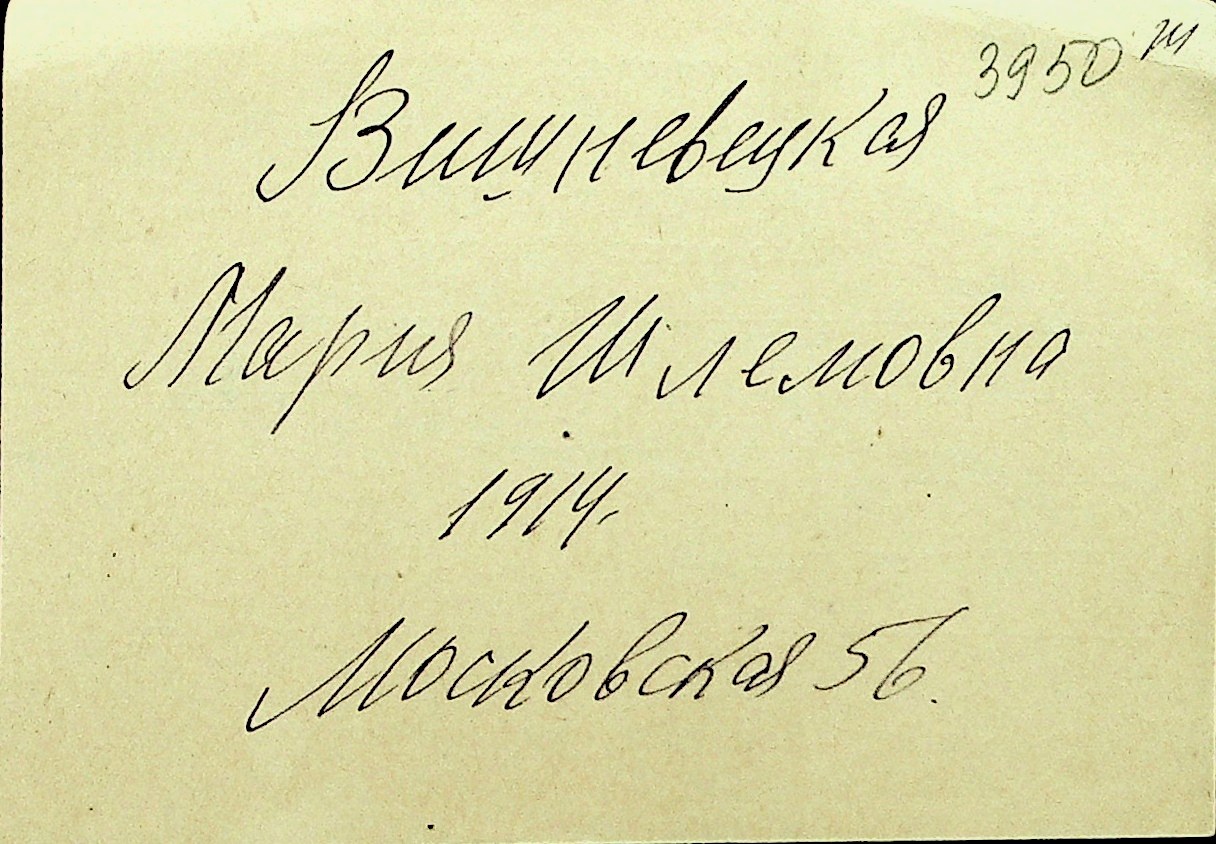 3950 ш
Вишневецкая
Мария Шлемовна
1914.
Московская 56.